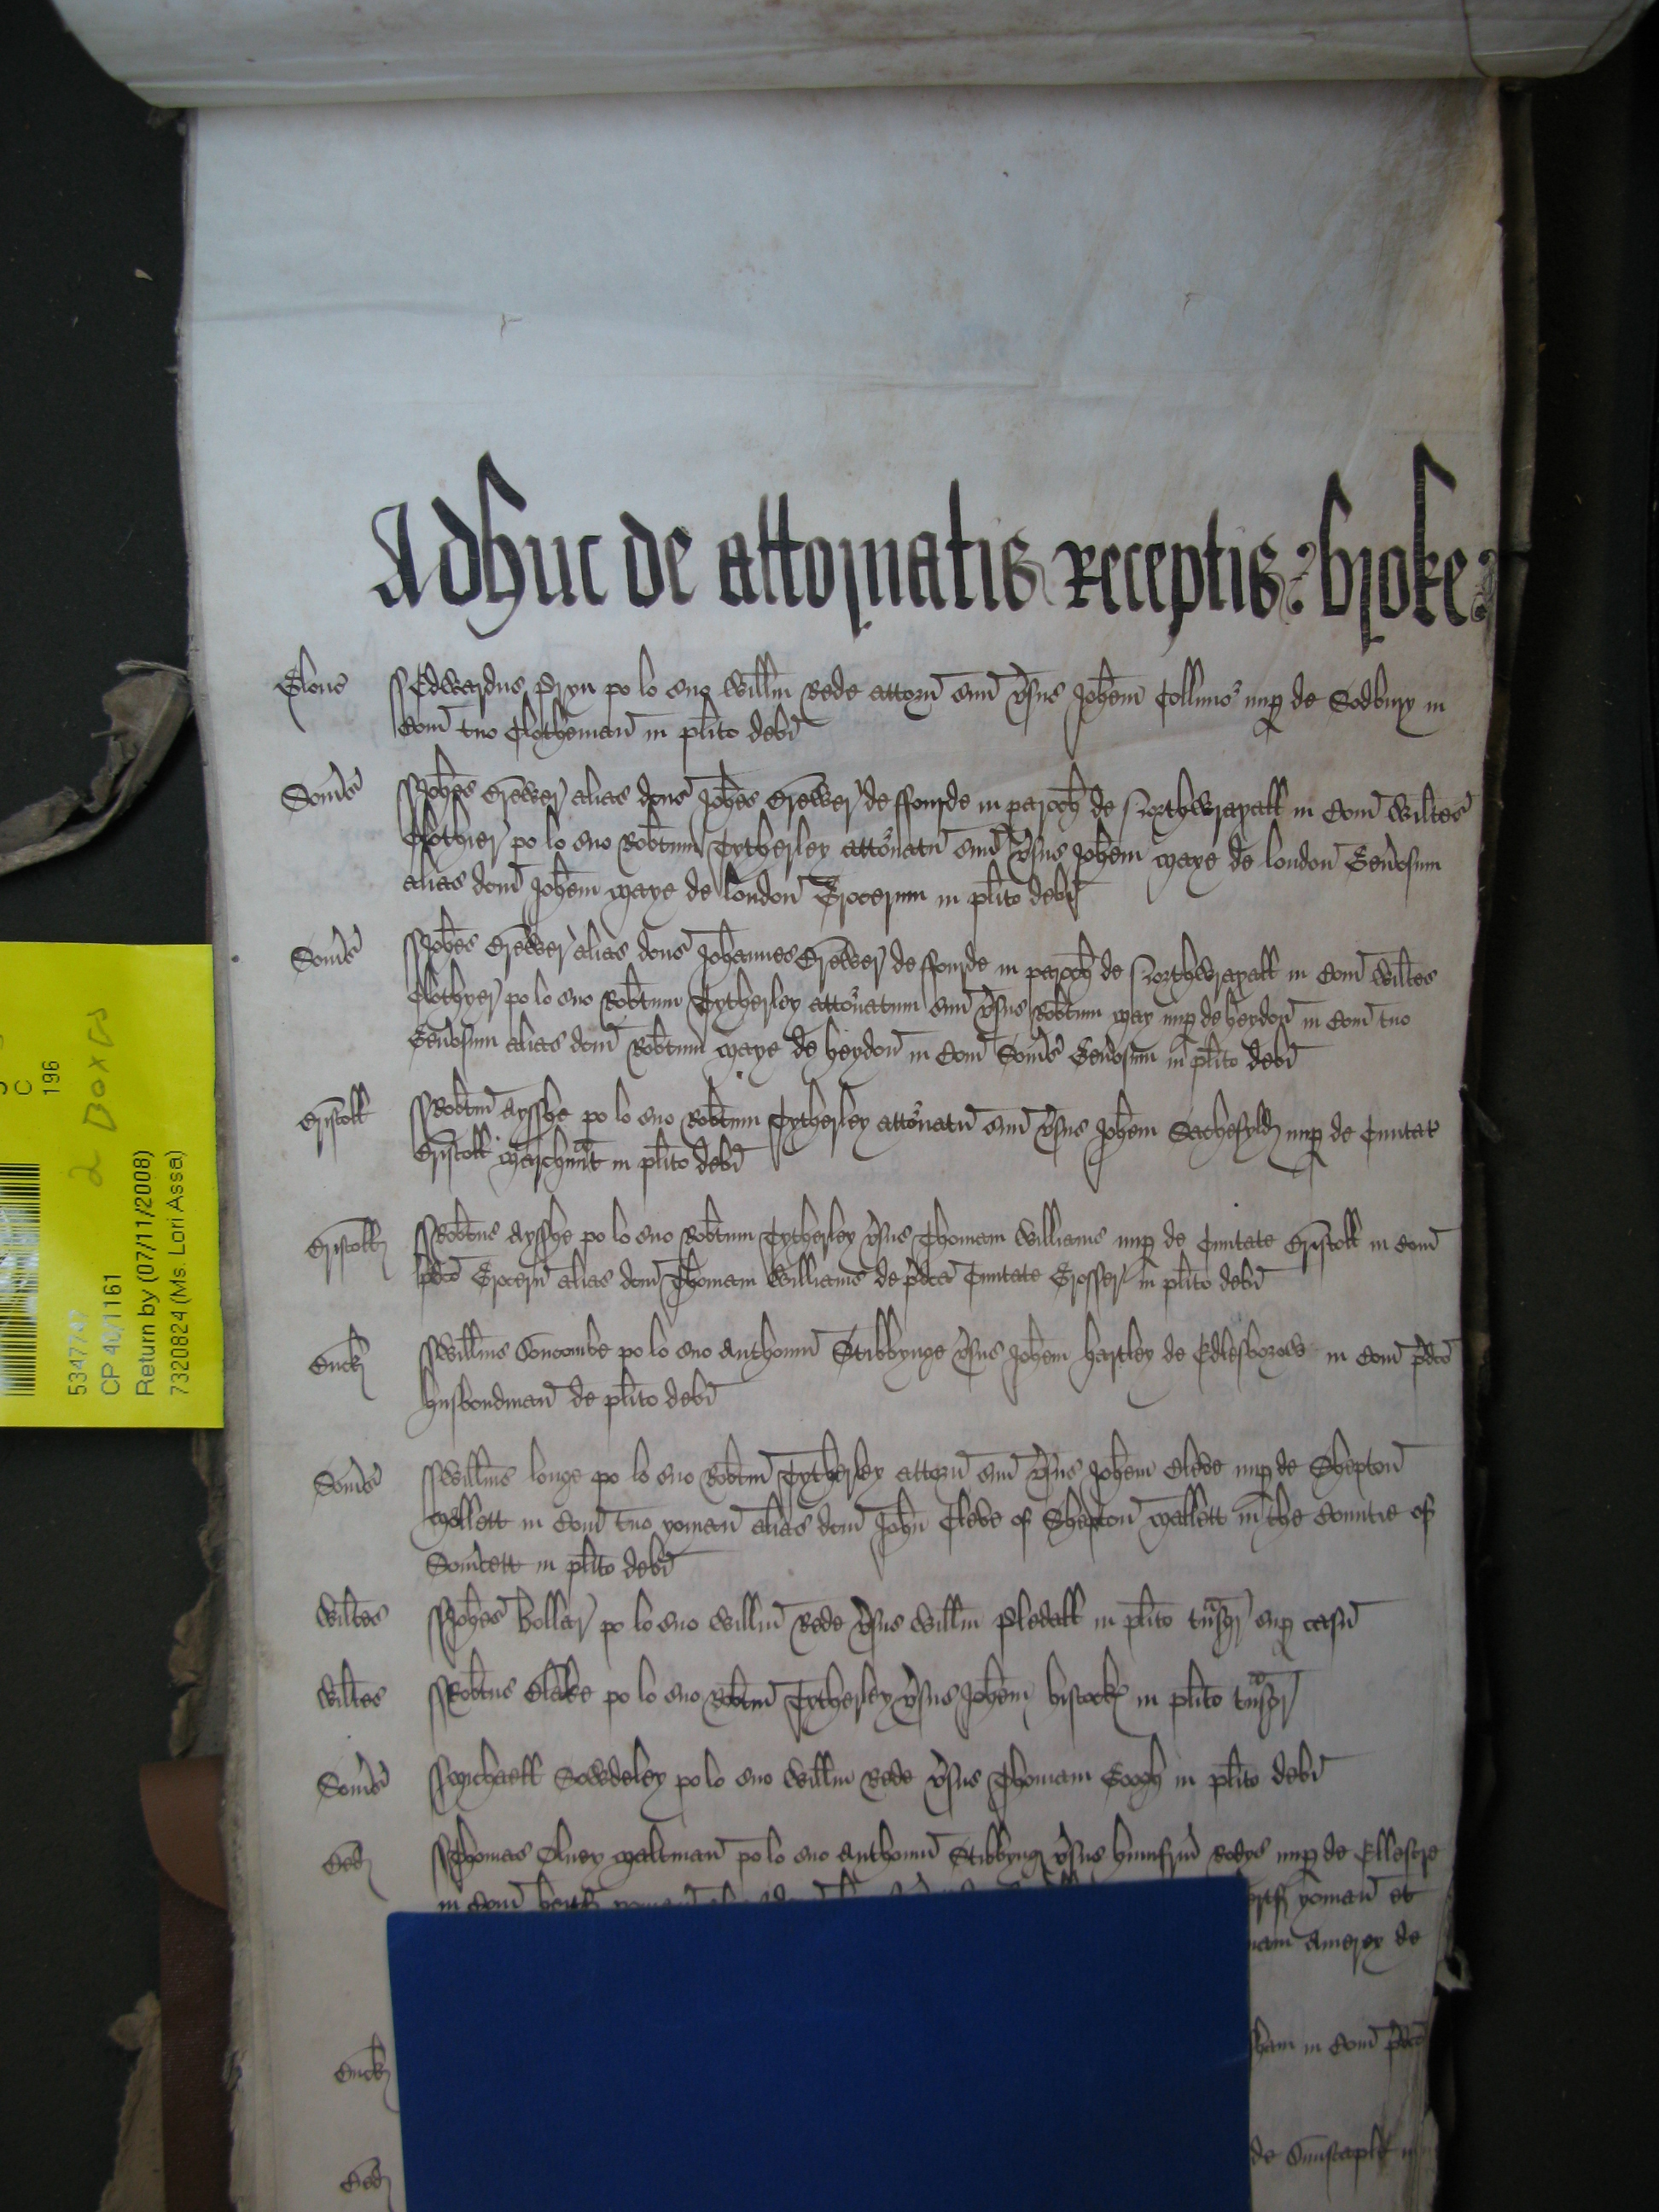 Adhuc de attornatis receptis broke
Glouc Edwardus Pryn po lo suo Willm Rede attorn suu vsus Johem Collins nup de Sodbury in
Com tuo Clotheman in plito debi
Somes Johes Brewer alias dcus Johes Brewer de fforde in paroch de Northwraxall in Com Wiltes
Clothier po lo suo Robtum Tytherley attornatu suu vsus Johem maye de london Genosum
alias dcm Johem maye de london Grocerum in plito debi
Somes Johes Brewer alias dcus Johannes Brewer de fforde in paroch de Northwraxall in Com Wiltes
Clothyer po lo suo Robtum Tytherley attornatum suu vsus Robtum may nup de heydon in Com tuo
Genosum alias dcm Robtum maye de heydon in Com Somes Genosum in plito debi
Bristoll Robtus Aysshe po lo suo Robtum Tytherley attornatu suu vsus Johem Sachefyld nup de Civitat
Bristoll mrchnt in plito debi
Bristoll Robtus Aysshe po lo suo Robtum Tytherley vsus Thomam Williams nup de Civitate Bristoll in Com
pdco Grocern alias dcm Thomam Williams de pdca Civitate Grosser in plito debi
Buck Willms Doncombe po lo suo Anthoniu Stibbynge vsus Johem hartley de Edlesborow in Com pdco
husbondman de plito debi
Somes Willms longe po lo suo Robtm Tytherley attorn suu vsus Johem Cleve nup de Shepton
mallett in Com tuo yoman alias dcm John Cleve of Shepton mallett in the Countie of
Somcett in plito debi
Wiltes Johes Boller po lo suo Willm Rede vsus Willm Pledall in plito tnsgr sup casu
Wiltes Robtus Blake po lo suo Robtm Tytherley vsus Johem in plito tnsgr
Somes Michaell Sowdeley po lo suo Willm Rede vsus Thomam Gough in plito debi
Bed Thomas Olney maltman po lo suo Anthoniu Stibbyng vsus humfrm nup de
in Com yoman et
Amerey de
Buck in Com pdco
Bed de Dunstaple in
5347747
CP 40/1161
Return by (07/11/2008)
7320824 (Ms. Lori Assa)
C
196
2 Boxes